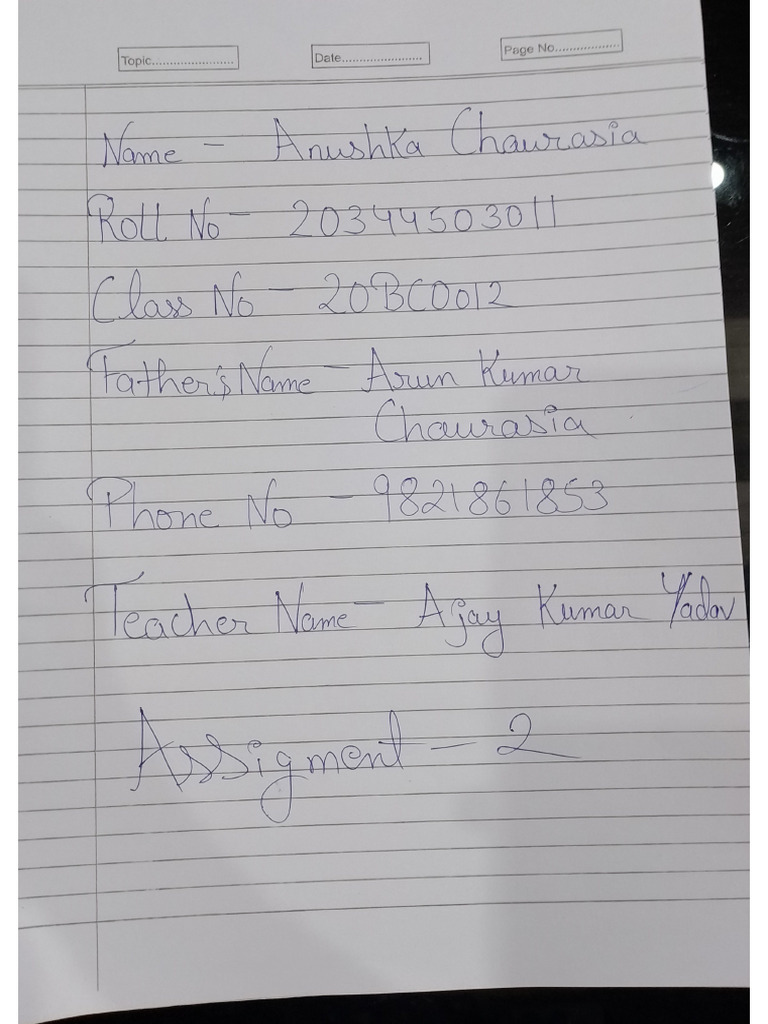 Topic........................ Date........................ Page No...................
Name - Anushka Chaurasia
Roll No - 20344503011
Class No - 20BC0012
Father's Name - Arun Kumar
Chaurasia
Phone No - 9821861853
Teacher Name - Ajay Kumar Yadav
Assigment - 2